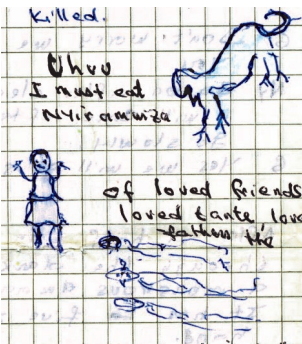 killed.
Uhvu
I must eat
Nyiramwiza
of loved friends
loved tante, love
fathers the